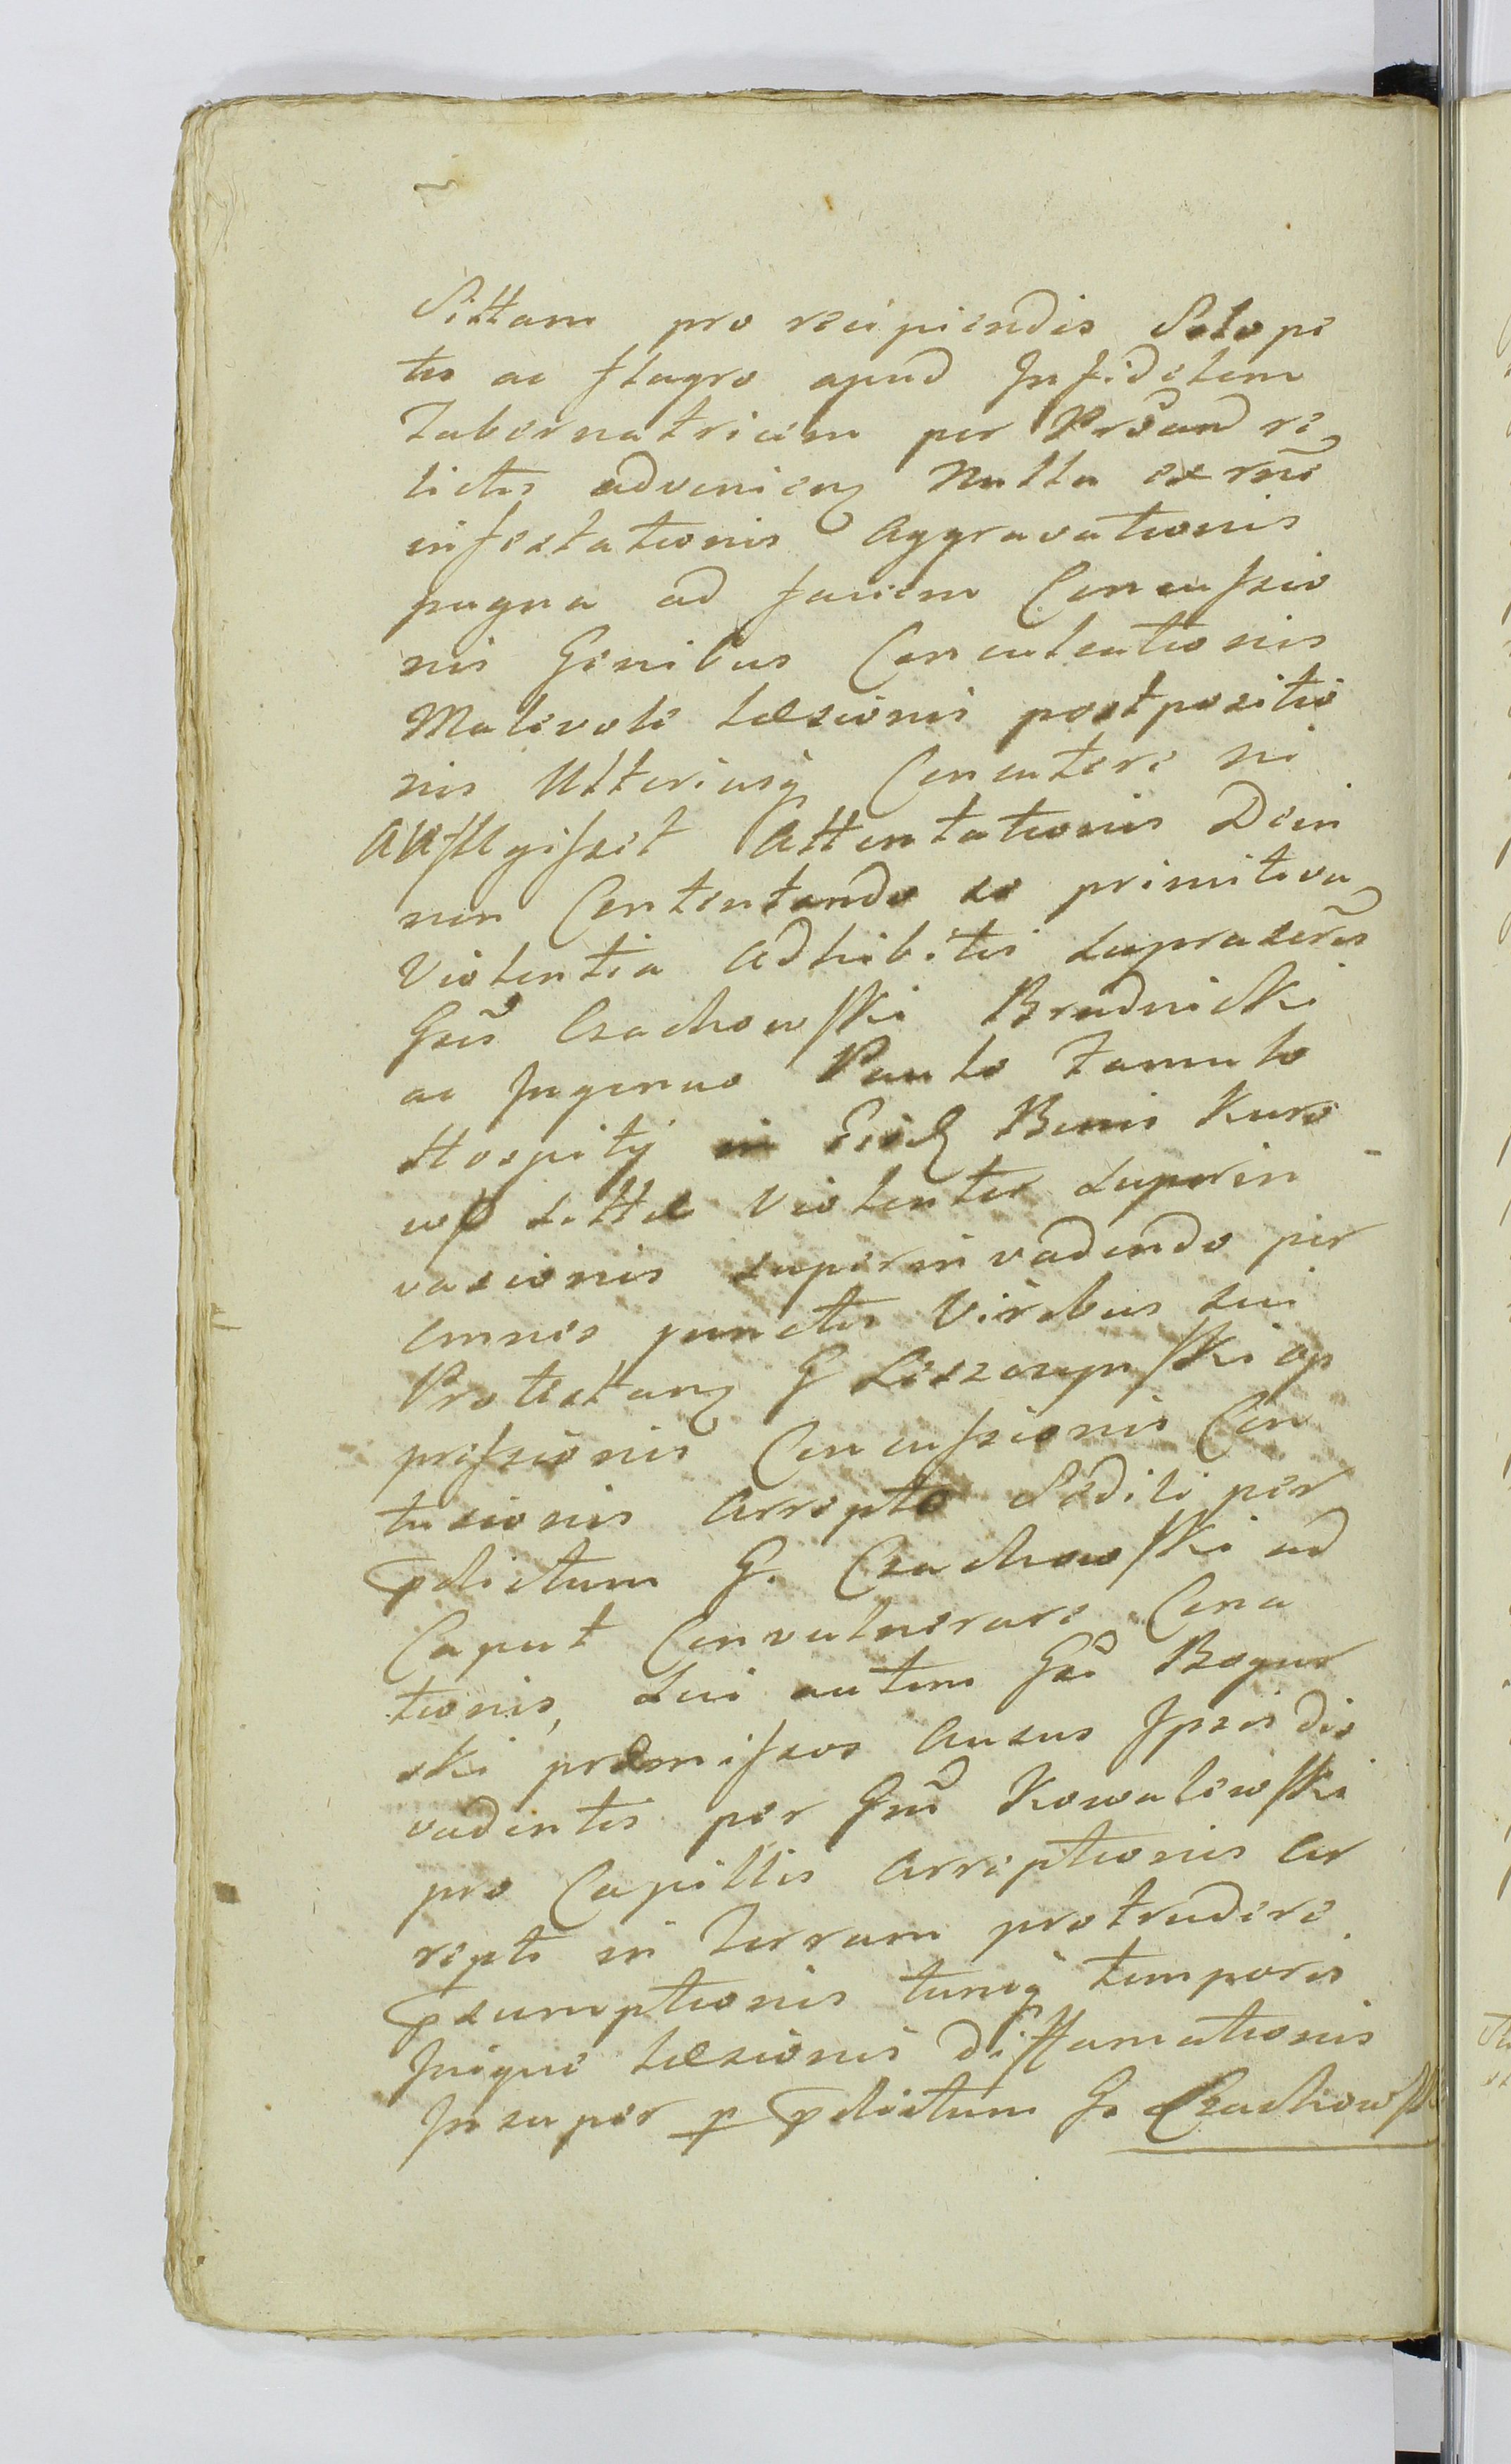 Sittam pro recipiendis Sclope
tis ac flagro apud Infidelem
Tabernatricem per Prõand re
lictis advenien Nulla ex rñe
infestationis Aggravationis
pugna ad faciem Concussio
nis Genibus Conculcationis
Malevole læsionis postpositio
nis Ulteriusq Concutere ni
Auffugisset Attentationis Dein
non Contentando se primitiva
Violentia Adhibitis suprascrõs
Gsis Czachowski Brudnicki
ac Ingenuo Paulo famulo
Hospitij in Bonis Kuro
wo Sittæ Violenter superin
vasionis superinvadendo per
omnes punctis Viribus sui
Protestan G Leszczynski op
pressionis Concussionis Con
tusionis Arrepto Sedili per
pdictum G. Czachowski ad
Caput Convulnerare Cona
tionis, sui autem Gsi Bogur
ski præmissos Ausus Ipsis dis
vadentis per Gm Kowalewski
pro Capillis Arreptionis Ar
repti in Terram protrudere
psumptionis tuncq temporis
Inique læsionis diffamationis
Insuper p pdictum G. Czachowski